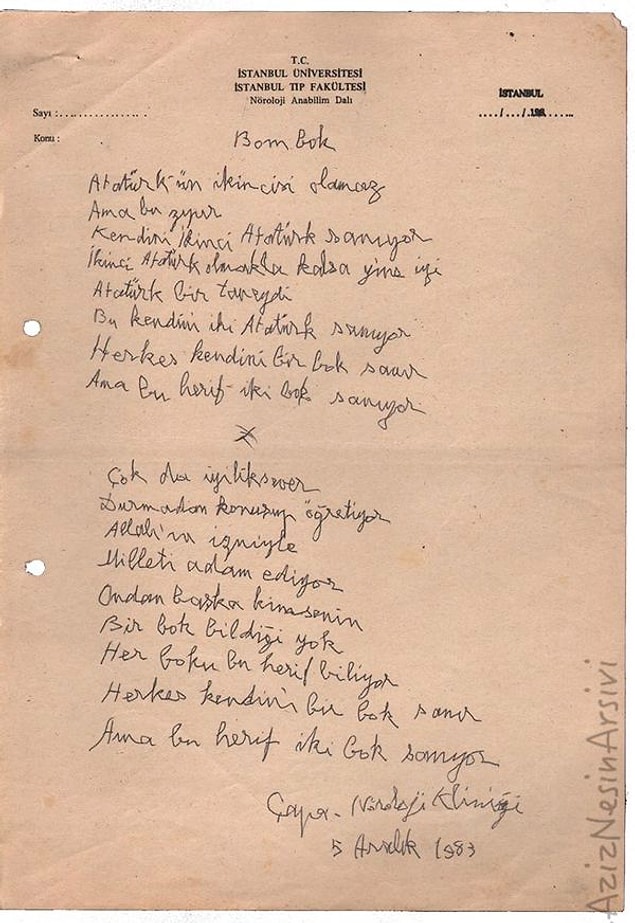 T.C.
İSTANBUL ÜNİVERSİTESİ
İSTANBUL TIP FAKÜLTESİ
Nöroloji Anabilim Dalı
İSTANBUL
Sayı :................
..../..../..198......
Konu :
Bom bok
Atatürk'ün ikincisi olamaz
Ama bu zıpır
Kendini ikinci Atatürk sanıyor
İkinci Atatürk olmakla kalsa yine iyi
Atatürk bir taneydi
Bu kendini iki Atatürk sanıyor
Herkes kendini bir bok sanır
Ama bu herif iki bok sanıyor
Çok da iyiliksever
Durmadan konuşup öğretiyor
Allah'ın izniyle
Milleti adam ediyor
Ondan başka kimsenin
Bir bok bildiği yok
Her boku bu herif biliyor
Herkes kendini bir bok sanır
Ama bu herif iki bok sanıyor
Çapa - Nöroloji Kliniği
5 Aralık 1983
AzizNesinArsivi